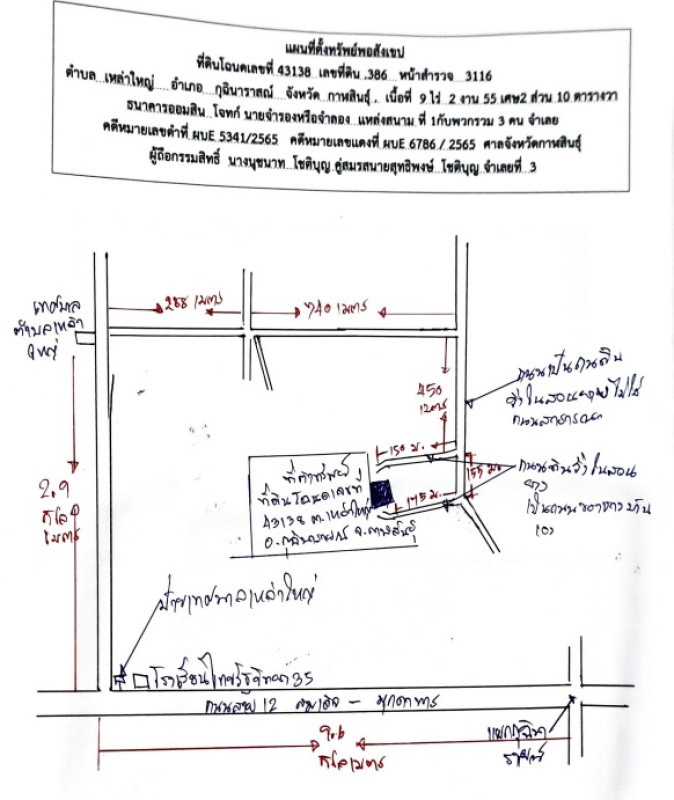 แผนที่ตั้งทรัพย์พอสังเขป
ที่ดินโฉนดเลขที่ 43138 เลขที่ดิน .386 หน้าสำรวจ 3116
ตำบล เหล่าใหญ่ อำเภอ กุฉินารายณ์ จังหวัด กาฬสินธุ์ , เนื้อที่ 9 ไร่ 2 งาน 55 เศษ2 ส่วน 10 ตารางวา
ธนาคารออมสิน โจทก์ นายจำรองหรือจำลอง แหล่งสนาม ที่ 1กับพวกรวม 3 คน จำเลย
คดีหมายเลขดำที่ ผบE 5341/2565 คดีหมายเลขแดงที่ ผบE 6786 / 2565 ศาลจังหวัดกาฬสินธุ์
ผู้ถือกรรมสิทธิ์ นางนุชนาท โชติบุญ คู่สมรสนายสุทธิพงษ์ โชติบุญ จำเลยที่ 3
288 เมตร
740 เมตร
เทศบาล
ตำบลเหล่า
ใหญ่
450
เมตร
ถนนเป็นดินเดิม
ถนนสาธารณะ
150 ม.
155 ม.
175 ม.
ที่ตั้งทรัพย์
ที่ดินโฉนดเลขที่
43138 ต.เหล่าใหญ่
อ.กุฉินารายณ์ จ.กาฬสินธุ์
2.9
กิโล
เมตร
ป้ายเทศบาลเหล่าใหญ่
โรงเรียนไทยรัฐวิทยา 35
ถนนสาย 12 สมเด็จ - มุกดาหาร
9.6
กิโลเมตร
แยกกุฉินา
รายณ์